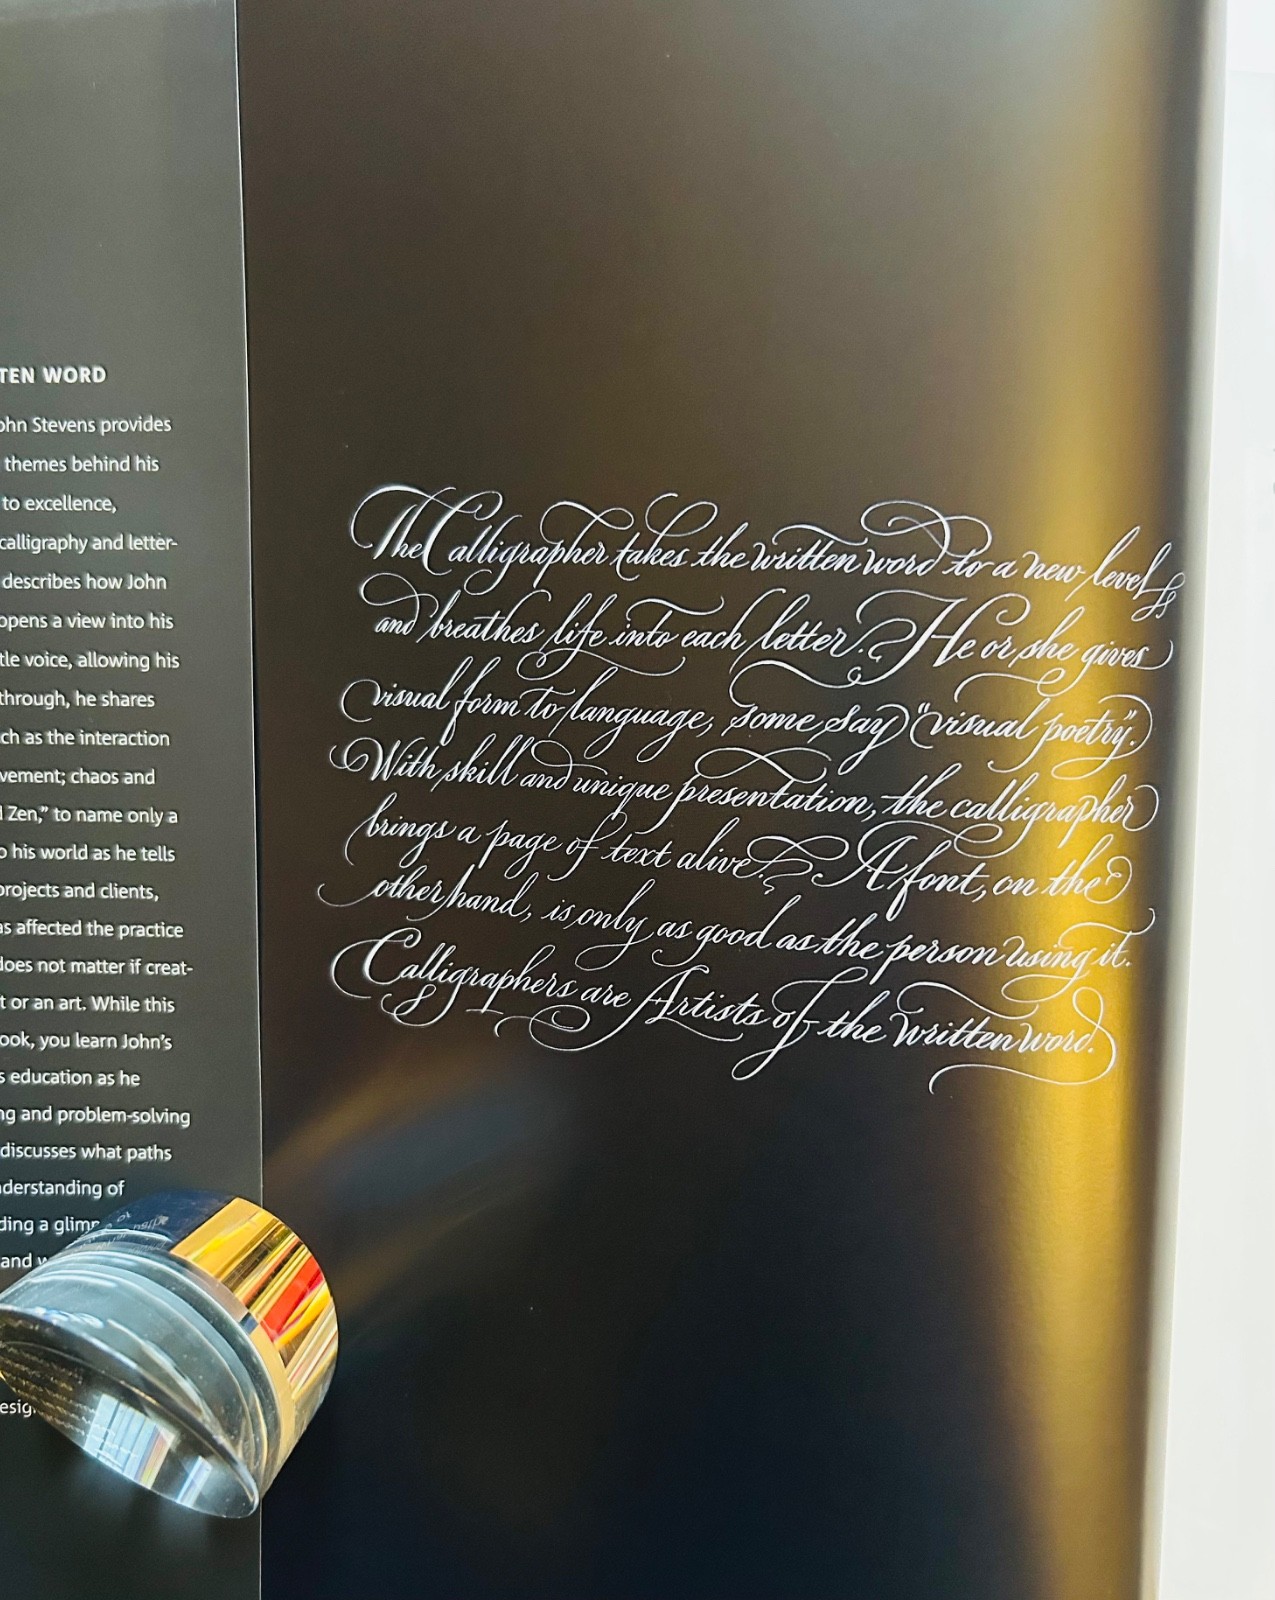 TEN WORD
ohn Stevens provides
themes behind his
to excellence,
calligraphy and letter-
describes how John
opens a view into his
tle voice, allowing his
through, he shares
ch as the interaction
vement; chaos and
d Zen,” to name only a
o his world as he tells
projects and clients,
as affected the practice
does not matter if creat-
t or an art. While this
ook, you learn John’s
s education as he
ng and problem-solving
discusses what paths
nderstanding of
ding a glimp
and w
esig
The Calligrapher takes the written word to a new level,
and breathes life into each letter. He or she gives
visual form to language, some say “visual poetry”.
With skill and unique presentation, the calligrapher
brings a page of text alive. A font, on the
other hand, is only as good as the person using it.
Calligraphers are Artists of the written word.